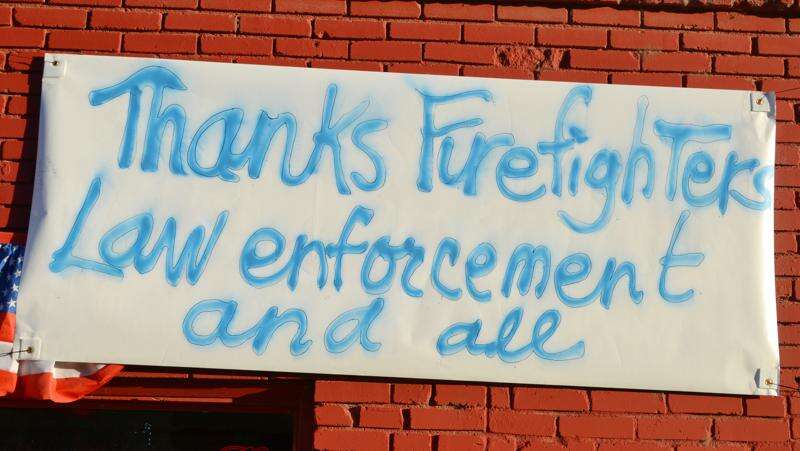 Thanks Furefighters
Law enforcement
and all